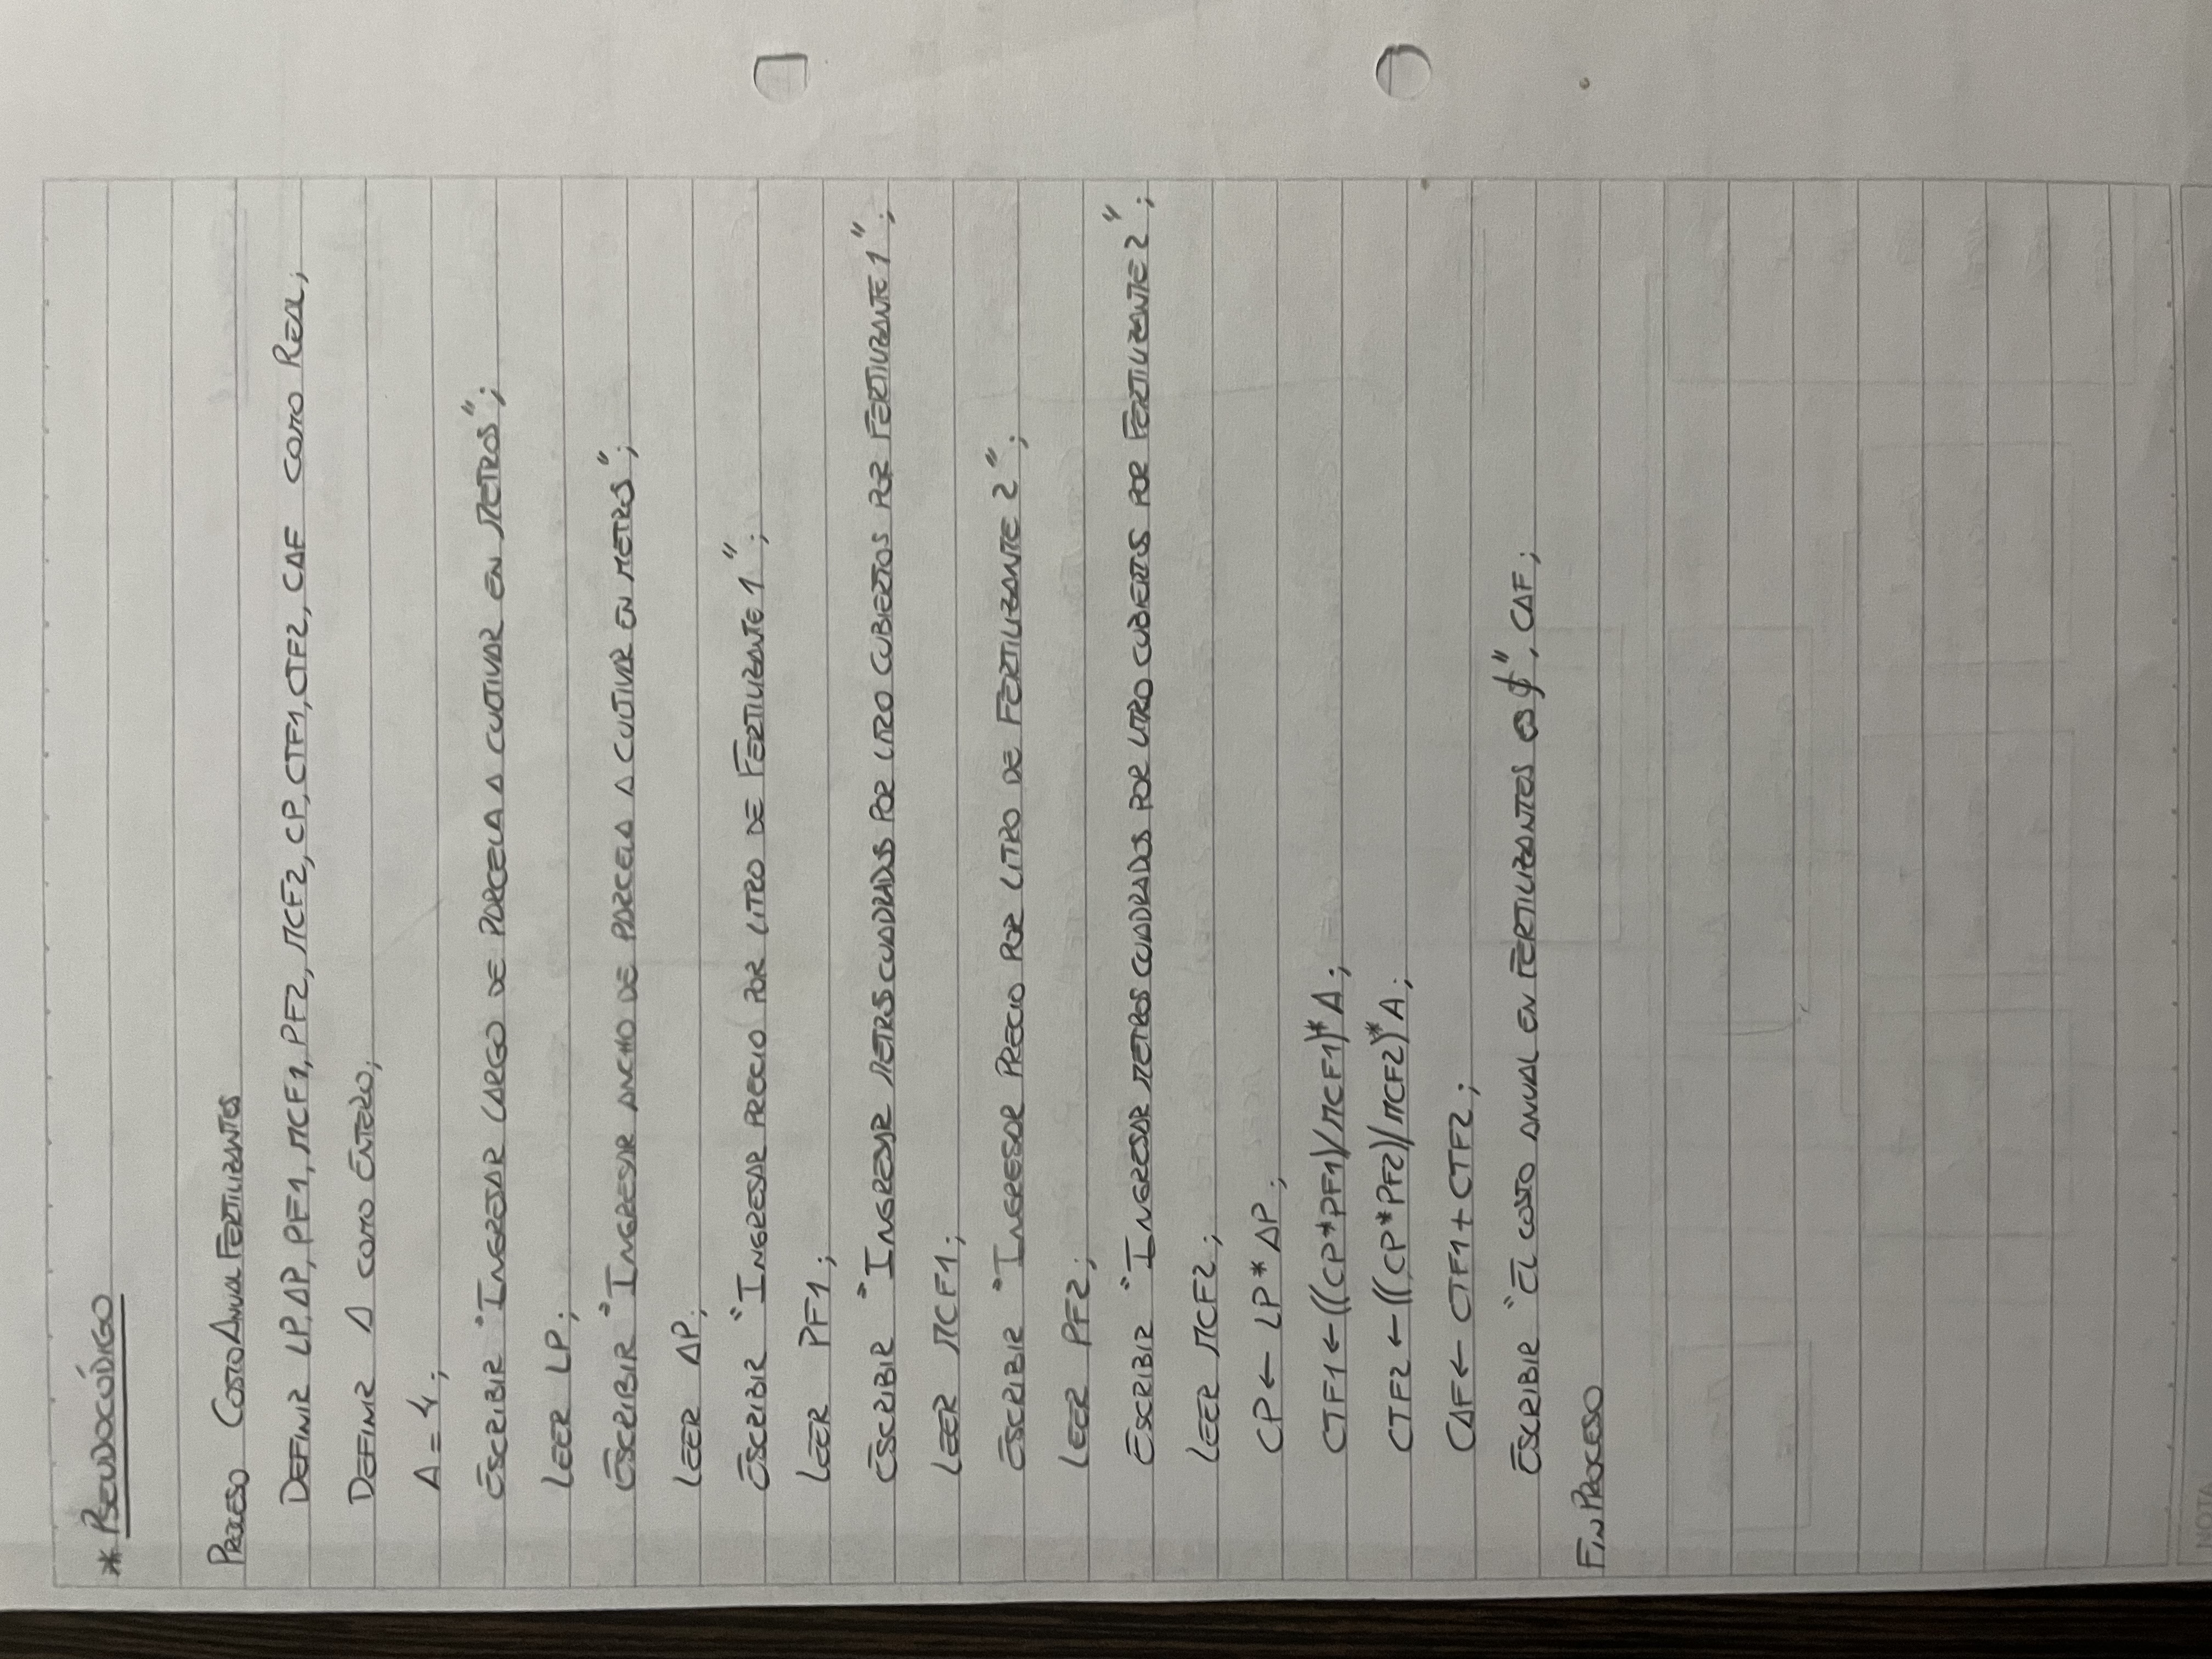 * PSEUDOCÓDIGO
PROCESO COSTOANUALFERTILIZANTES
DEFINIR LP, AP, PF1, MCF1, PF2, MCF2, CP, CTF1, CTF2, CAF COMO REAL;
DEFINIR A COMO ENTERO;
A = 4;
ESCRIBIR "INGRESAR LARGO DE PARCELA A CULTIVAR EN METROS";
LEER LP;
ESCRIBIR "INGRESAR ANCHO DE PARCELA A CULTIVAR EN METROS";
LEER AP;
ESCRIBIR "INGRESAR PRECIO POR LITRO DE FERTILIZANTE 1";
LEER PF1;
ESCRIBIR "INGRESAR METROS CUADRADOS POR LITRO CUBIERTOS POR FERTILIZANTE 1";
LEER MCF1;
ESCRIBIR "INGRESAR PRECIO POR LITRO DE FERTILIZANTE 2";
LEER PF2;
ESCRIBIR "INGRESAR METROS CUADRADOS POR LITRO CUBIERTOS POR FERTILIZANTE 2";
LEER MCF2;
CP ← LP * AP;
CTF1 ← ((CP*PF1)/MCF1)*A;
CTF2 ← ((CP*PF2)/MCF2)*A;
CAF ← CTF1 + CTF2;
ESCRIBIR "EL COSTO ANUAL EN FERTILIZANTES ES $", CAF;
FINPROCESO
NOTA